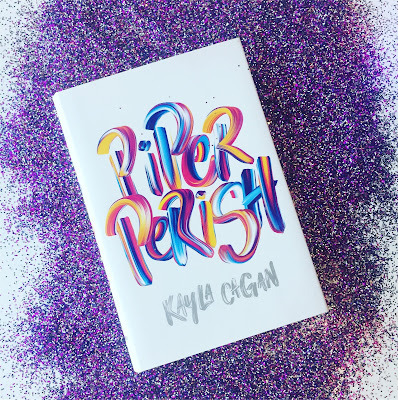 PiPER
PERiSH
KAYLA CAGAN